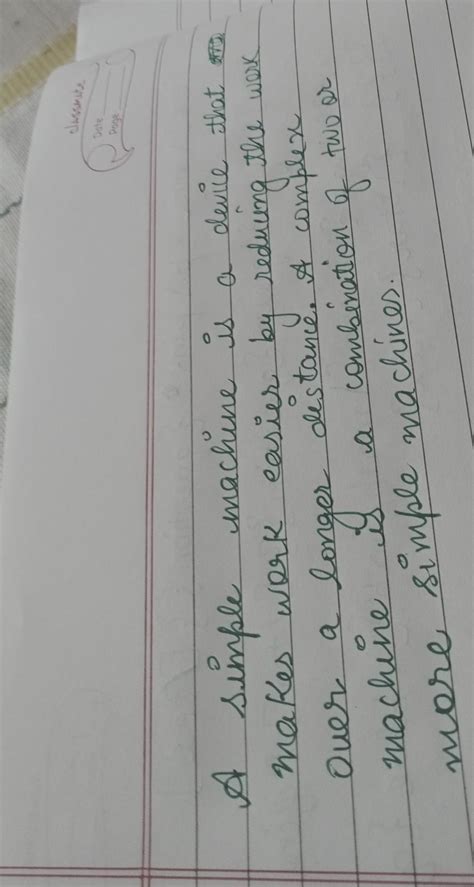 classmate
Date
Page
A simple machine is a device that
makes work easier by reducing the work
over a longer distance. A complex
machine is a combination of two or
more simple machines.